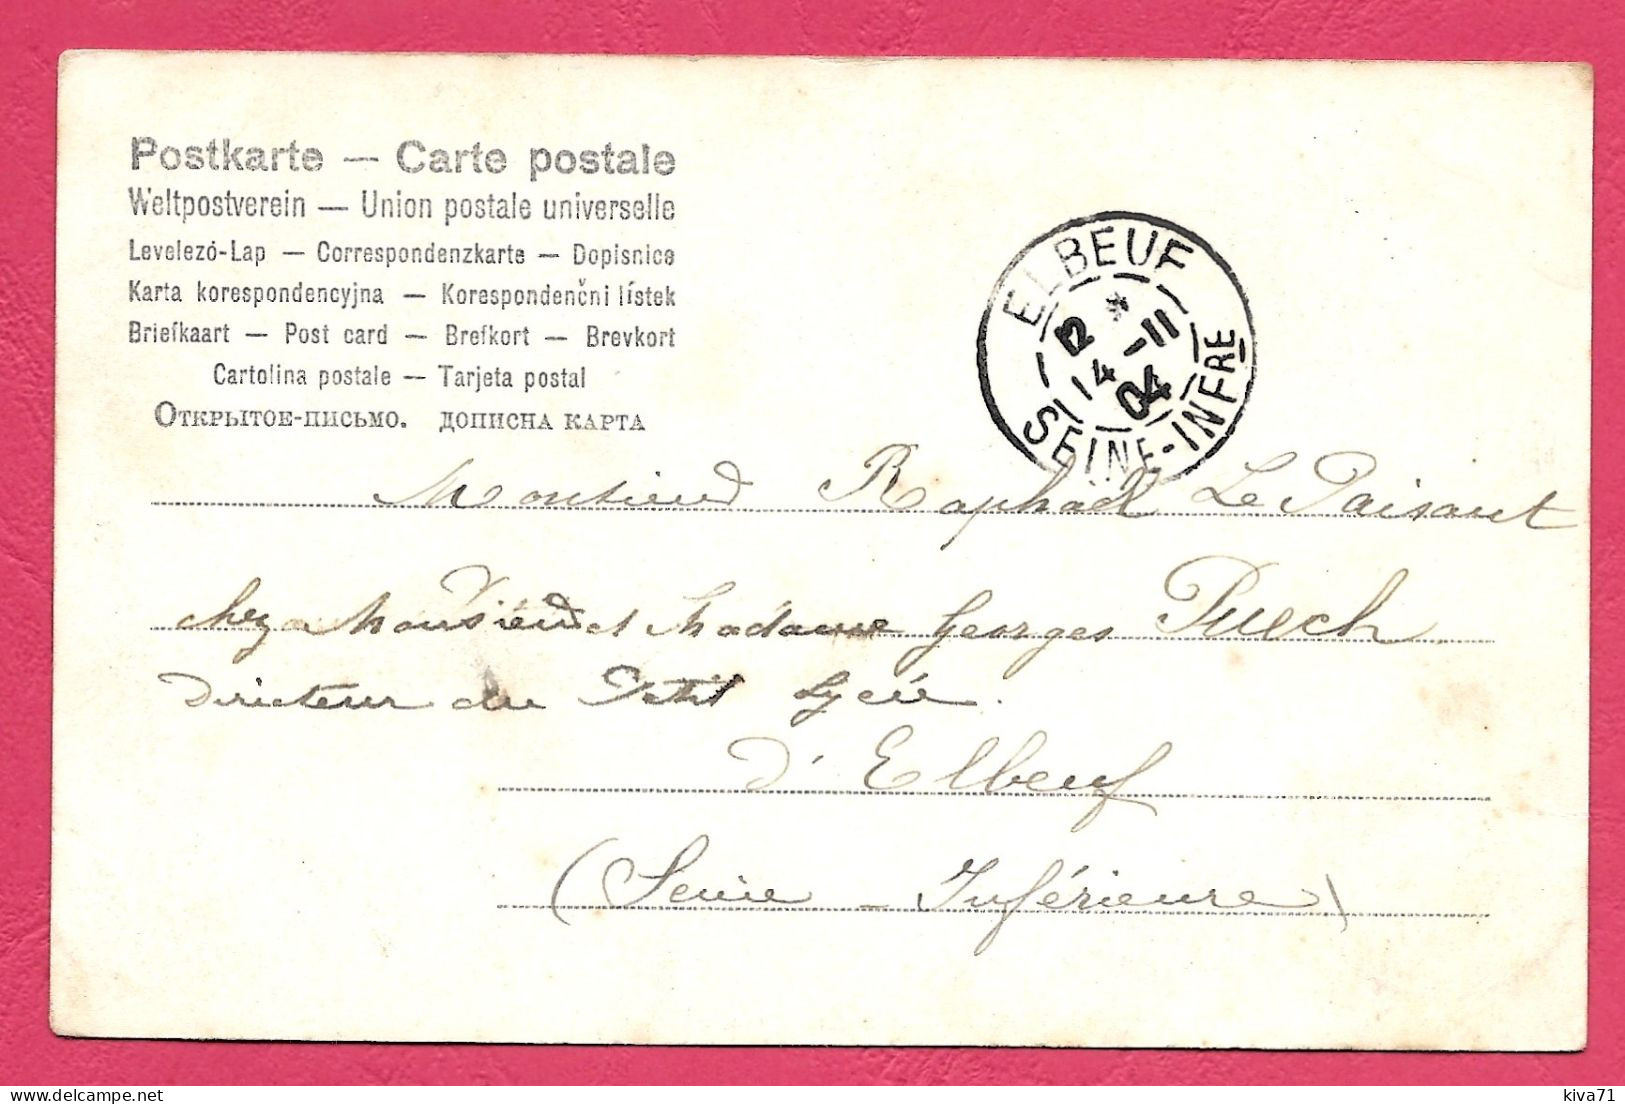 Postkarte — Carte postale
Weltpostverein — Union postale universelle
Levelező-Lap — Correspondenzkarte — Dopisnice
Karta korespondencyjna — Korespondenčni lístek
Briefkaart — Post card — Brefkort — Brevkort
Cartolina postale — Tarjeta postal
Открытое-письмо. дописна карта
ELBEUF
12 *
4 -11
04
SEINE-INFRE
Monsieur Raphaël Le Paisant
chez Monsieur et Madame Georges Puech
Directeur du Petit Lycée.
d'Elbeuf
(Seine - Inférieure)
kiva71